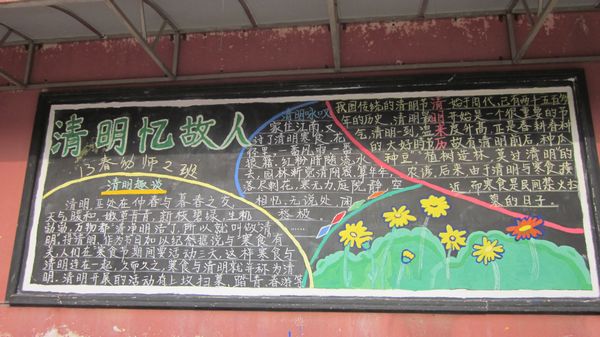 清明忆故人
13春幼师2班
清明趣谈
清明正处在仲春与暮春之交,
天气暖和,嫩草青青,新枝碧绿,生机
勃勃,万物都“清净明洁了,所以就叫做清
明,按清明,作为节日如以纪念据说与“寒食”有
关,人们在寒食节期间要活动三天,这样寒食与
清明连在一起,久而久之,寒食与清明就并称为清
明,清明开展的活动有上坟扫墓,踏青,春游等
清明咏叹
家住
过了清明寒食
狼藉,红粉脂随流水
去,园林渐觉清阴密,算年年
落尽刺花,寒无力,庭院静,空
相忆,无说处,闲
愁极.
我国传统的清明节 始于周代,已有两千五百多
年的历史,清明 开始是一个很重要的节
气,清明一到, 度升高,正是春耕春种
的大好时节,故有清明前后,种瓜
种豆,植树造林,莫过清明的
农谚,后来由于清明与寒食族
近,而寒食是民间禁火扫
墓的日子.
清明来历